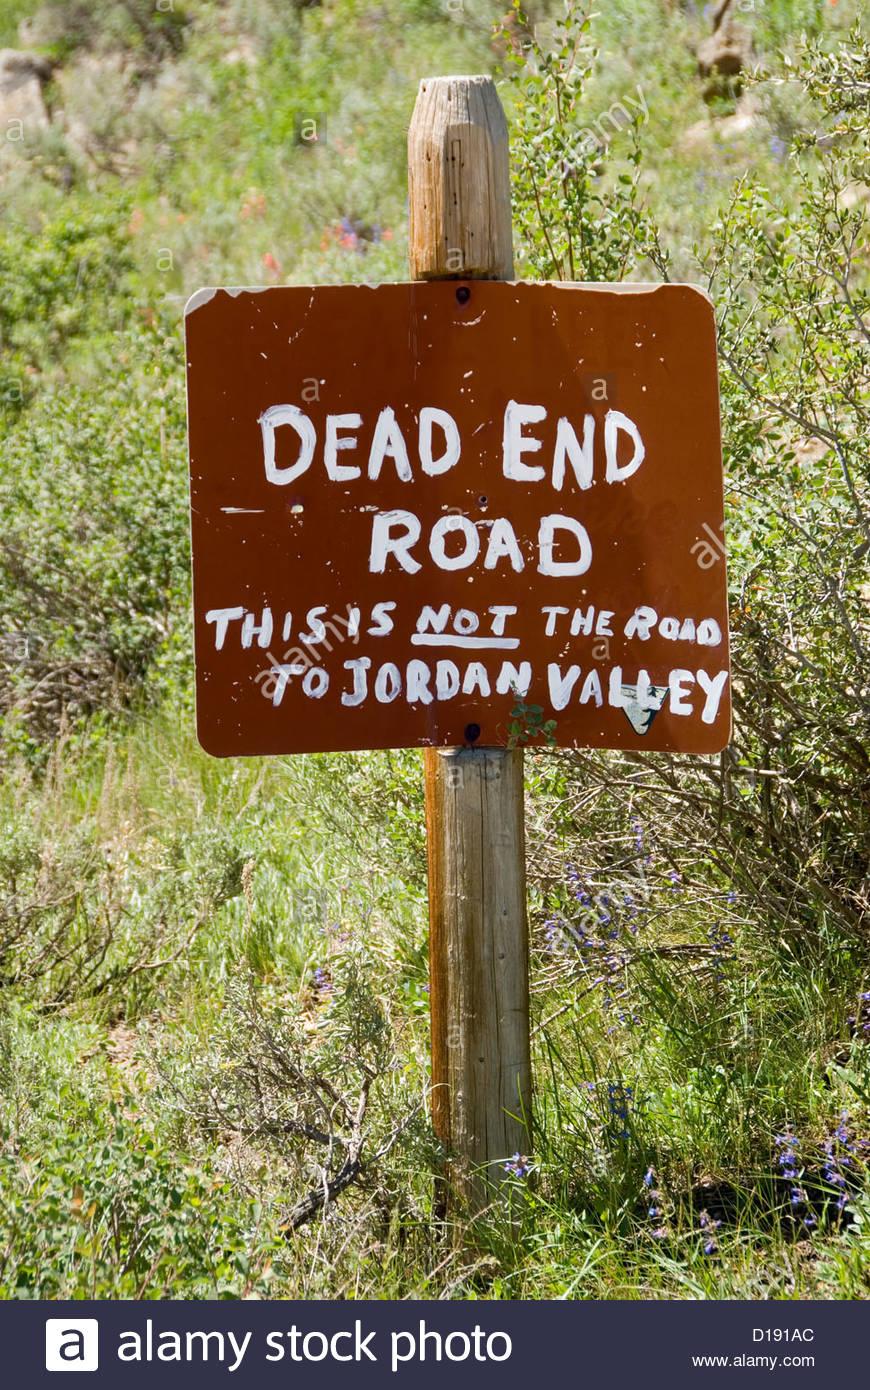 DEAD END
ROAD
THIS IS NOT THE ROAD
TO JORDAN VALLEY
a alamy stock photo
D191AC
www.alamy.com